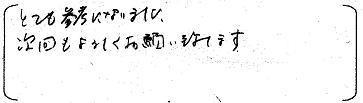 とても参考になりました
次回もよろしくお願い致します